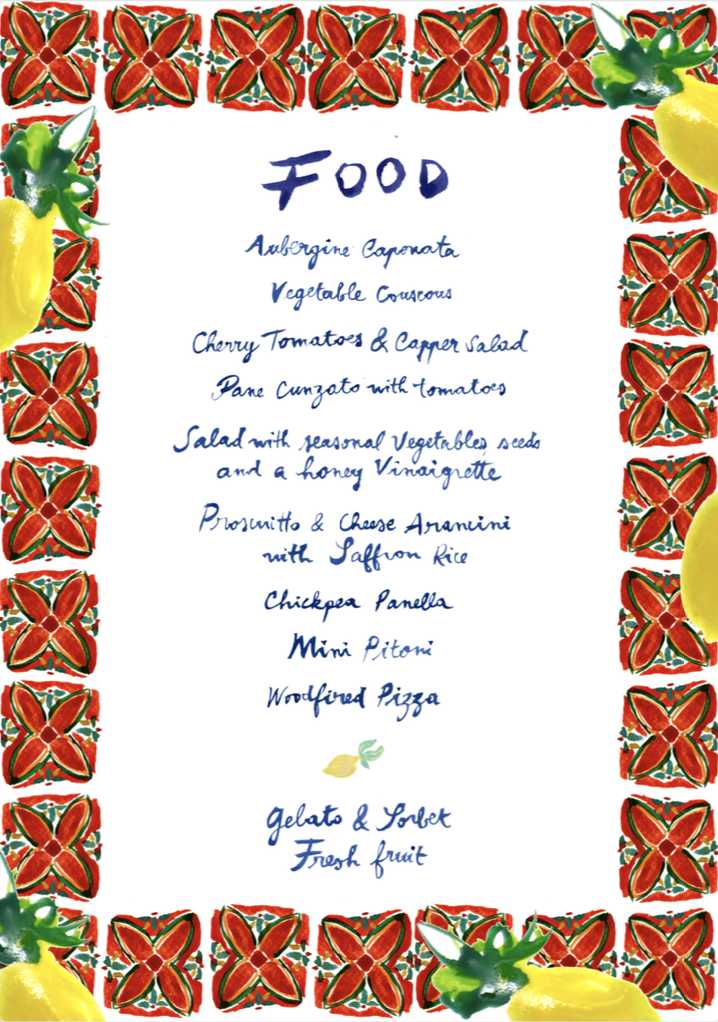 FOOD
Aubergine Caponata
Vegetable Couscous
Cherry Tomatoes & Capper Salad
Pane Cunzato with tomatoes
Salad with seasonal Vegetables, seeds
and a honey Vinaigrette
Proscuitto & Cheese Arancini
with Saffron Rice
Chickpea Panella
Mini Pitoni
Woodfired Pizza
Gelato & Sorbet
Fresh fruit